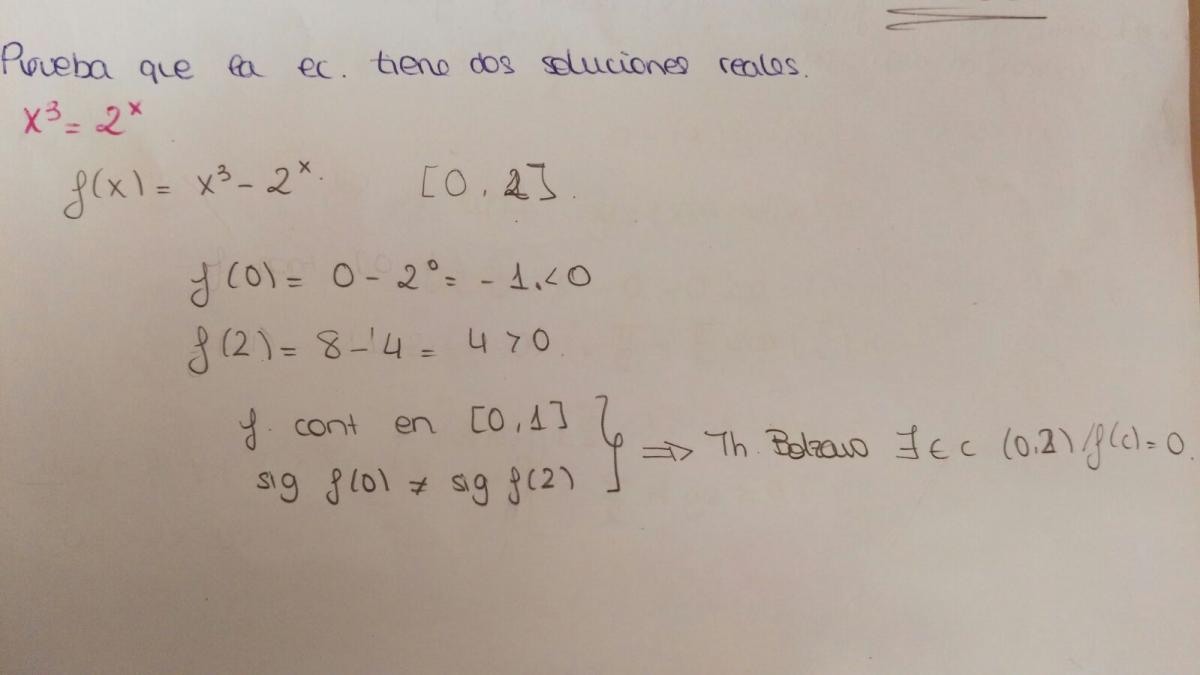 Prueba que la ec. tiene dos soluciones reales.
x³ = 2ˣ
f(x) = x³ - 2ˣ. [0, 2].
f(0) = 0 - 2⁰ = - 1. < 0
f(2) = 8 - 4 = 4 > 0.
f. cont en [0, 1]
sig f(0) ≠ sig f(2) } ⇒ Th. Bolzano ∃ ∈ c (0,2) / f(c) = 0.